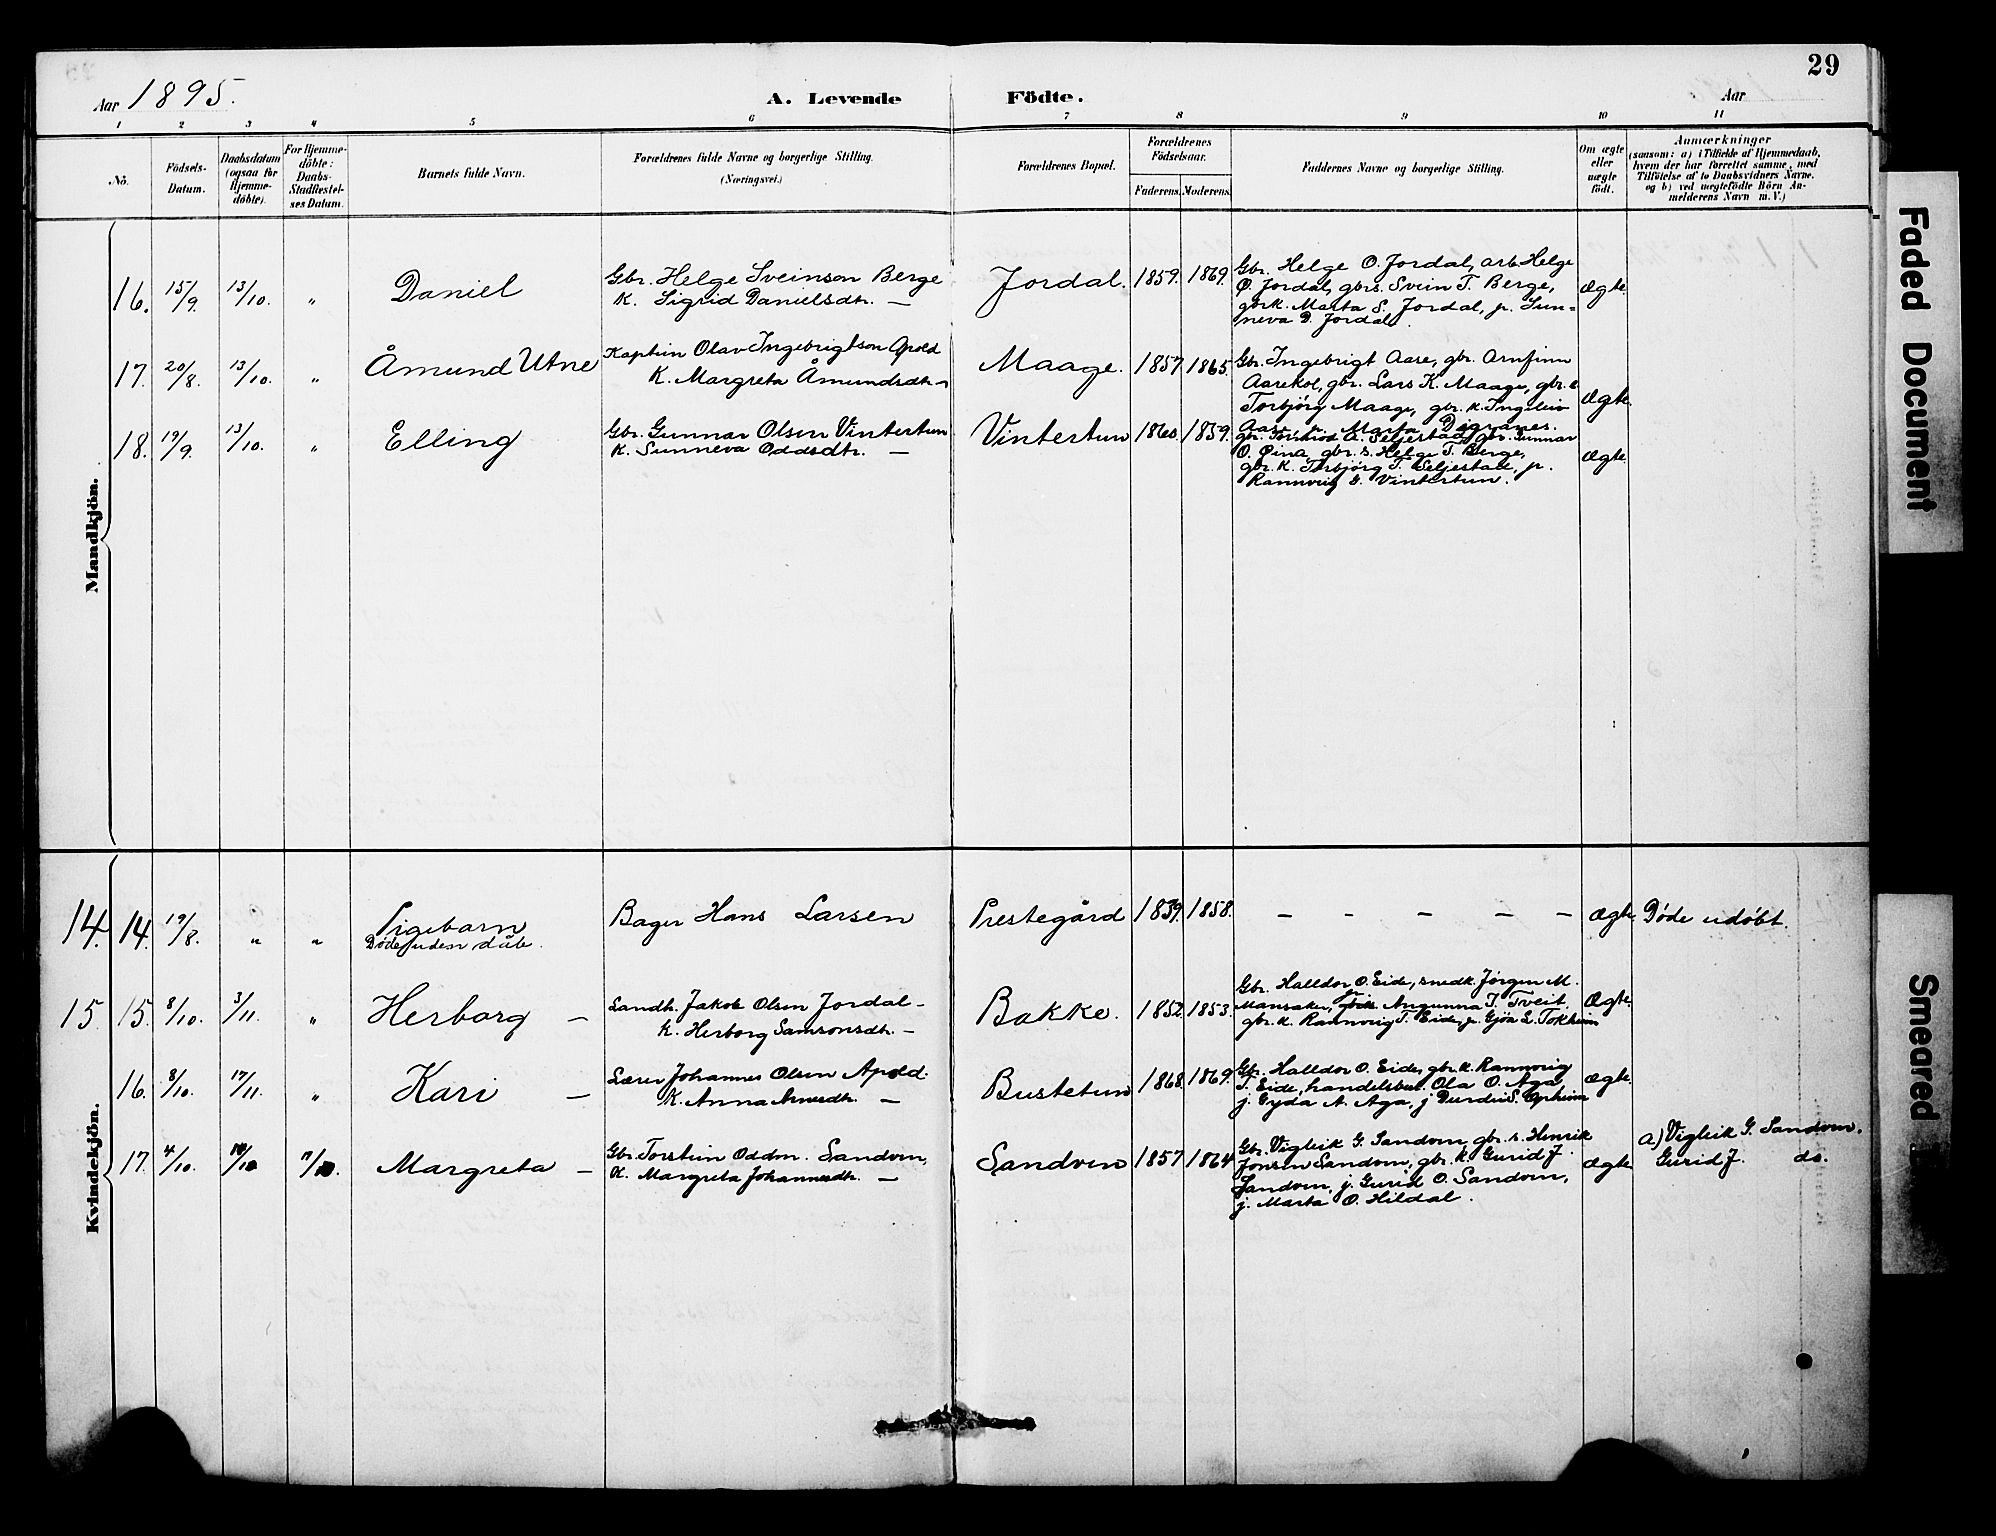 29
Aar 1895.
A. Levende Födte.
Aar
1 2 3 4 5 6 7 8 9 10 11
No.
Födsels-
Datum.
Daabsdatum
(ogsaa for
Hjemme-
döbte).
For Hjemme-
döbte:
Daabs-
Stadfæstel-
ses Datum.
Barnets fulde Navn.
Forældrenes fulde Navne og borgerlige Stilling.
(Næringsvei.)
Forældrenes Bopæl.
Forældrenes
Födselsaar.
Faderens. Moderens.
Faddernes Navne og borgerlige Stilling.
Om ægte
eller
uægte
födt.
Anmærkninger
(saasom: a) i Tilfælde af Hjemmedaab,
hvem der har forrettet samme, med
Tilföielse af to Daabsvidners Navne,
og b) ved uægtefödte Börn An-
melderens Navn m. V.)
Mandkjön.
16. 15/9. 13/10. „ Daniel
Gbr. Helge Sveinson Berge
K. Sigrid Danielsdtr. —
Jordal. 1859. 1869.
Gbr. Helge O. Jordal, arb. Helge
O. Jordal, gbrs. Svein T. Berge,
gbrk. Marta S. Jordal, p. Sun=
neva D. Jordal.
ægte.
17. 20/8. 13/10. „ Åmund Utne
Kaptein Olav Ingebrigtson Apold
K. Margreta Åmundsdtr. —
Maage. 1857. 1865.
Gbr. Ingebrigt Aase, gbr. Arnfinn
Aarekol, gbr. Lars K. Maage, gbr. k
Torbjörg Maage, gbr. k. Ingeleiv
Aase, p. Marta Digranes.
ægte.
18. 19/9. 13/10. „ Elling
Gbr. Gunnar Olsen Vintertun
K. Sunneva Oddsdtr. —
Vintertun 1860. 1859.
gbr. A. Seljestad, gbr. Gunnar
O. Eina, gbr. s. Helge T. Berge,
gbr. K. Torbjørg T. Seljestad, p.
Rannveig G. Vintertun.
ægte.
Kvindekjön.
14. 14. 19/8. „ „ Pigebarn
Døde uden dåb.
Bager Hans Larsen
Prestegård 1859. 1858.
— — — — —
ægte. Døde udøbt.
15 15. 8/10. 3/11. „ Herborg —
Landh. Jakob Olsen Jordal —
K. Herborg Samsonsdtr. —
Bakke. 1852. 1853.
Gbr. Halldor O. Eide, smedk. Jørgen M.
Mansaker, Angunna T. Tveit,
gbr. k. Rannveig T. Eide, p. Gjøa L. Tokheim
Ægte.
16. 8/10. 17/11. „ Kari —
Lærer Johannes Olsen Apold.
K. Anna Arnesdtr. —
Bustetun 1868. 1869.
Gbr. Halldor O. Eide, gbr. k. Rannveig
T. Eide, handelsbet. Ola O. Aga,
j. Gyda A. Aga, j S. Opheim
ægte.
17. 4/10. „/10. Margreta —
Gbr. Torstein Oddm. Sandven,
K. Margreta Johannesdtr. —
Sandven 1857 1864
Gbr. Vigleik G. Sandven, gbr. s. Henrik
Jonsen Sandven, gbr. k. Gurid J.
Sandven, j. Gurid O. Sandven,
j. Marta O. Hildal.
ægte.
a.) Vigleik G. Sandven.
Gurid J. do.
Faded Document
Smeared